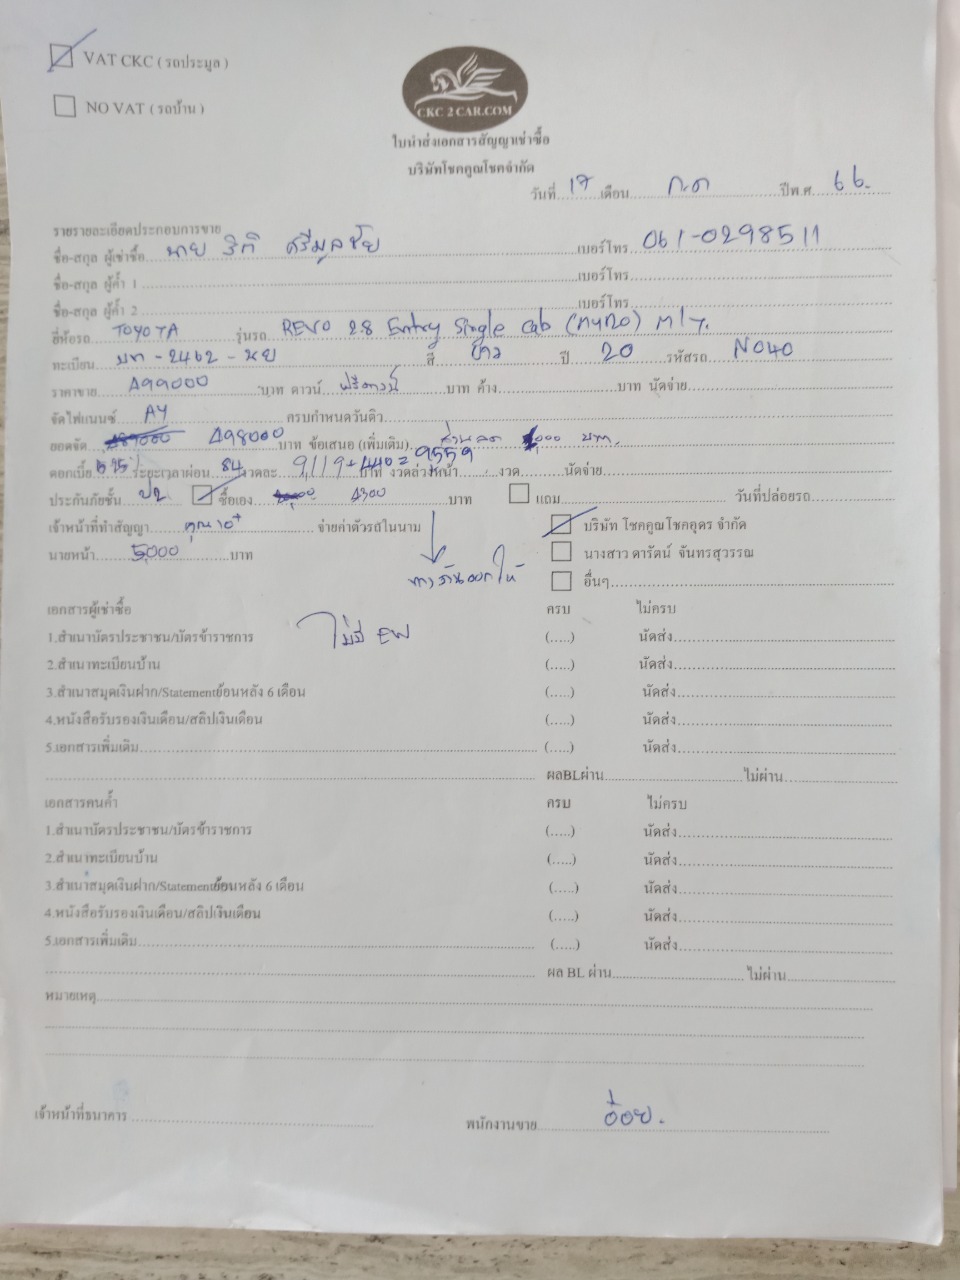 VAT CKC ( รถประมูล )
NO VAT ( รถบ้าน )
CKC 2 CAR.COM
ใบนำส่งเอกสารสัญญาเช่าซื้อ
บริษัทโชคคูณโชคจำกัด
วันที่ 17 เดือน ก.ค ปีพ.ศ. 66.
รายรายละเอียดประกอบการขาย
ชื่อ-สกุล ผู้เช่าซื้อ นาย ศรีมูลชัย เบอร์โทร 061-0298511
ชื่อ-สกุล ผู้ค้ำ 1 เบอร์โทร
ชื่อ-สกุล ผู้ค้ำ 2 เบอร์โทร
ยี่ห้อรถ TOYOTA รุ่นรถ REVO 2.8 Entry Single Cab (MY20) M/T.
ทะเบียน 2462 สี ขาว ปี 20 รหัสรถ N040
ราคาขาย 499000 บาท ดาวน์ ฟรีดาวน์ บาท ค้าง บาท นัดจ่าย
จัดไฟแนนซ์ AY ครบกำหนดวันดิว
ยอดจัด 498000 บาท ข้อเสนอ (เพิ่มเติม) ส่วนลด 1,000 บาท.
ดอกเบี้ย ระยะเวลาผ่อน 84 งวดละ 9,119+440=9559 บาท งวดล่วงหน้า งวด นัดจ่าย
ประกันภัยชั้น ป2 ซื้อเอง 4300 บาท แถม วันที่ปล่อยรถ
เจ้าหน้าที่ทำสัญญา จ่ายค่าตัวรถในนาม บริษัท โชคคูณโชคอุดร จำกัด
นายหน้า 5,000 บาท นางสาว ดารัตน์ จันทรสุวรรณ
ทางร้านออกให้ อื่นๆ
เอกสารผู้เช่าซื้อ ครบ ไม่ครบ
1.สำเนาบัตรประชาชน/บัตรข้าราชการ ไม่มี EW (.....) นัดส่ง
2.สำเนาทะเบียนบ้าน (.....) นัดส่ง
3.สำเนาสมุดเงินฝาก/Statementย้อนหลัง 6 เดือน (.....) นัดส่ง
4.หนังสือรับรองเงินเดือน/สลิปเงินเดือน (.....) นัดส่ง
5.เอกสารเพิ่มเติม (.....) นัดส่ง
ผลBLผ่าน ไม่ผ่าน
เอกสารคนค้ำ ครบ ไม่ครบ
1.สำเนาบัตรประชาชน/บัตรข้าราชการ (.....) นัดส่ง
2.สำเนาทะเบียนบ้าน (.....) นัดส่ง
3.สำเนาสมุดเงินฝาก/Statementย้อนหลัง 6 เดือน (.....) นัดส่ง
4.หนังสือรับรองเงินเดือน/สลิปเงินเดือน (.....) นัดส่ง
5.เอกสารเพิ่มเติม (.....) นัดส่ง
ผล BL ผ่าน ไม่ผ่าน
หมายเหตุ
เจ้าหน้าที่ธนาคาร พนักงานขาย อ้อย.